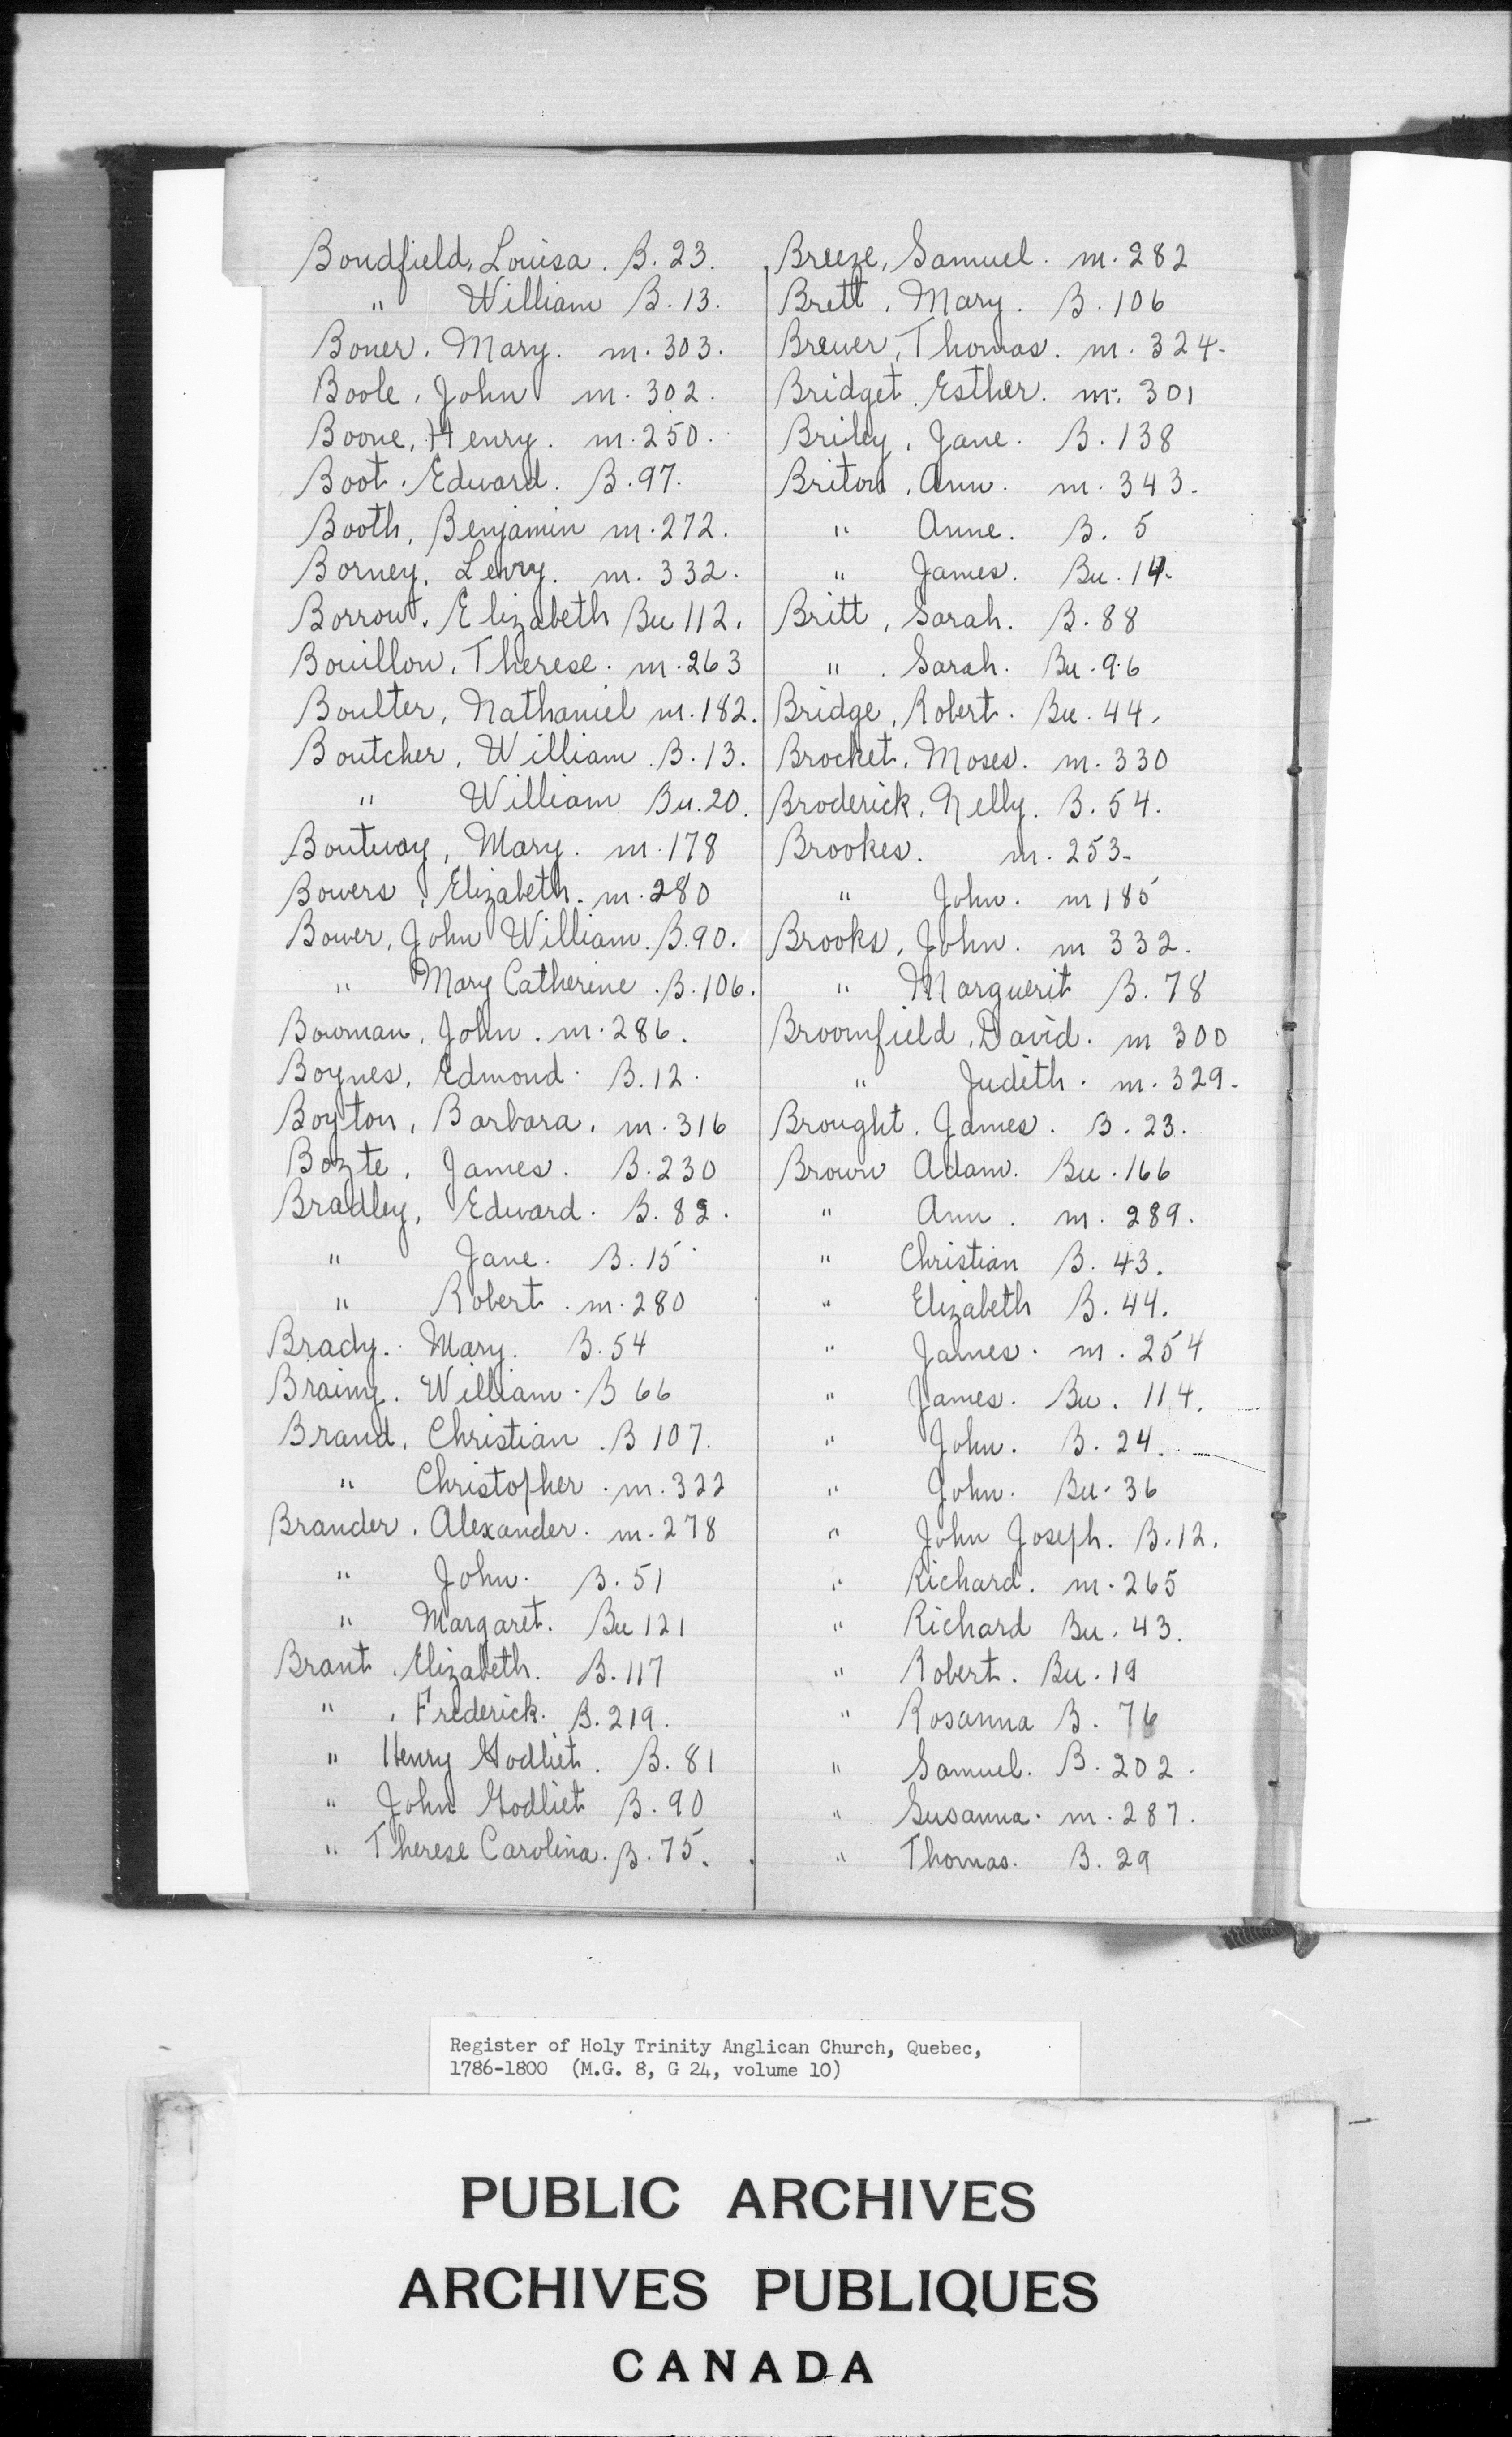 Bondfield, Louisa. B. 23.
" William B. 13.
Boner. Mary. m. 303.
Boole, John m. 302.
Boone, Henry. m. 250.
Boot. Edward. B. 97.
Booth, Benjamin m. 272.
Borney, Levry. m. 332.
Borrowt. Elizabeth Bu 112.
Bouillon, Therese. m. 263
Boulter, Nathaniel m. 182.
Boutcher, William. B. 13.
" William Bu. 20.
Boutway, Mary. m. 178
Bowers, Elizabeth. m. 280
Bower, John William. B. 90.
" Mary Catherine. B. 106.
Bowman, John. m. 286.
Boynes, Edmond. B. 12.
Boyton, Barbara. m. 316
Bozte, James. B. 230
Bradley, Edward. B. 82.
" Jane. B. 15
" Robert. m. 280
Brady. Mary. B. 54
Brainy. William. B 66
Brand, Christian. B 107.
" Christopher. m. 322
Brander. Alexander. m. 278
" John. B. 51
" Margaret. Bu 121
Brant. Elizabeth. B. 117
" Frederick. B. 219.
" Henry Godliet. B. 81
" John Godliet B. 90
" Therese Carolina. B. 75.
Breeze, Samuel. m. 282
Brett, Mary. B. 106
Brewer, Thomas. m. 324.
Bridget. Esther. m. 301
Briley, Jane. B. 138
Briton, Ann. m. 343.
" Anne. B. 5
" James. Bu. 14.
Britt, Sarah. B. 88
" Sarah. Bu. 96
Bridge, Robert. Bu. 44.
Brocket, Moses. m. 330
Broderick, Nelly. B. 54.
Brookes. m. 253.
" John. m 185
Brooks, John. m 332.
" Marguerit B. 78
Broomfield, David. m 300
" Judith. m. 329.
Brought. James. B. 23.
Brown Adam. Bu. 166
" Ann. m. 289.
" Christian B. 43.
" Elizabeth B. 44.
" James. m. 254
" James. Bu. 114.
" John. B. 24.
" John. Bu. 36
" John Joseph. B. 12.
" Richard. m. 265
" Richard Bu. 43.
" Robert. Bu. 19
" Rosanna B. 76
" Samuel. B. 202.
" Susanna. m. 287.
" Thomas. B. 29
Register of Holy Trinity Anglican Church, Quebec,
1786-1800 (M.G. 8, G 24, volume 10)
PUBLIC ARCHIVES
ARCHIVES PUBLIQUES
CANADA